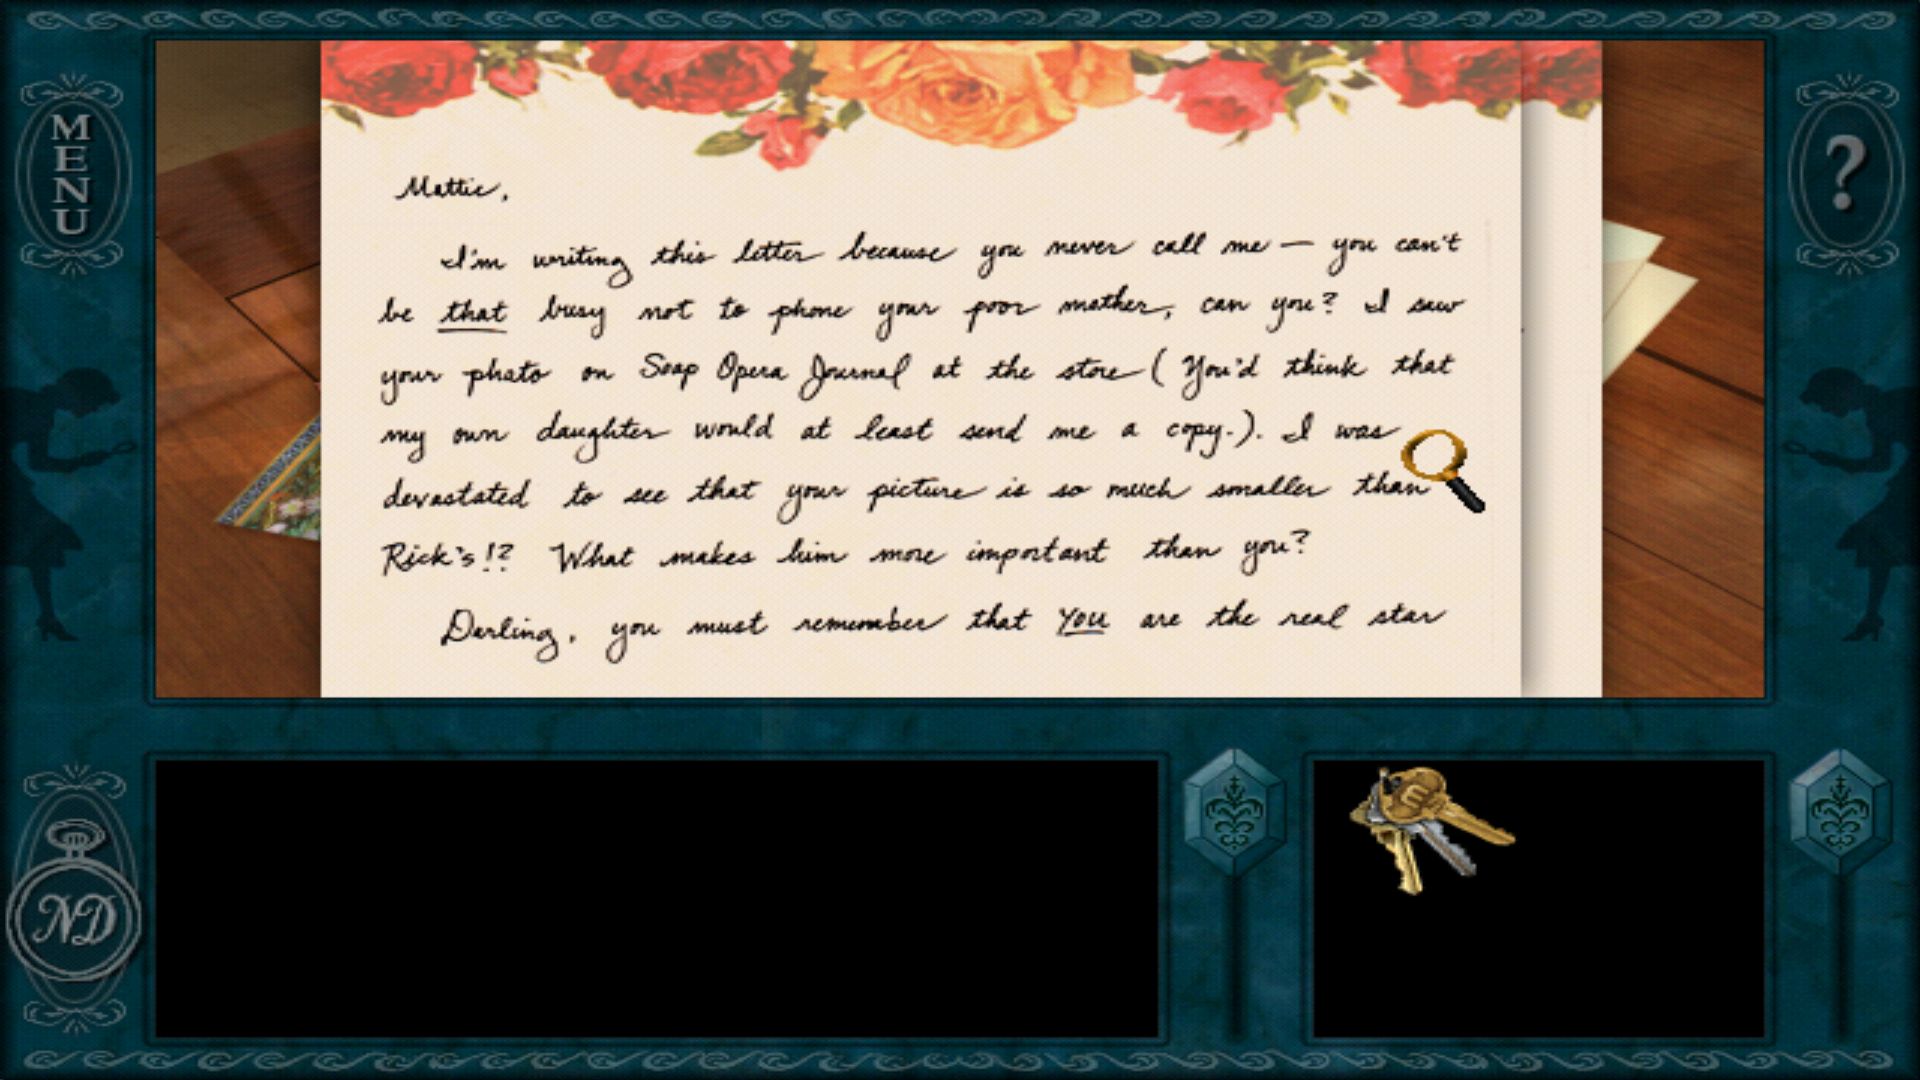 MENU
?
Mattie,
I'm writing this letter because you never call me — you can't
be that busy not to phone your poor mother, can you? I saw
your photo on Soap Opera Journal at the store ( You'd think that
my own daughter would at least send me a copy.). I was
devastated to see that your picture is so much smaller than
Rick's!? What makes him more important than you?
Darling, you must remember that you are the real star
ND
E